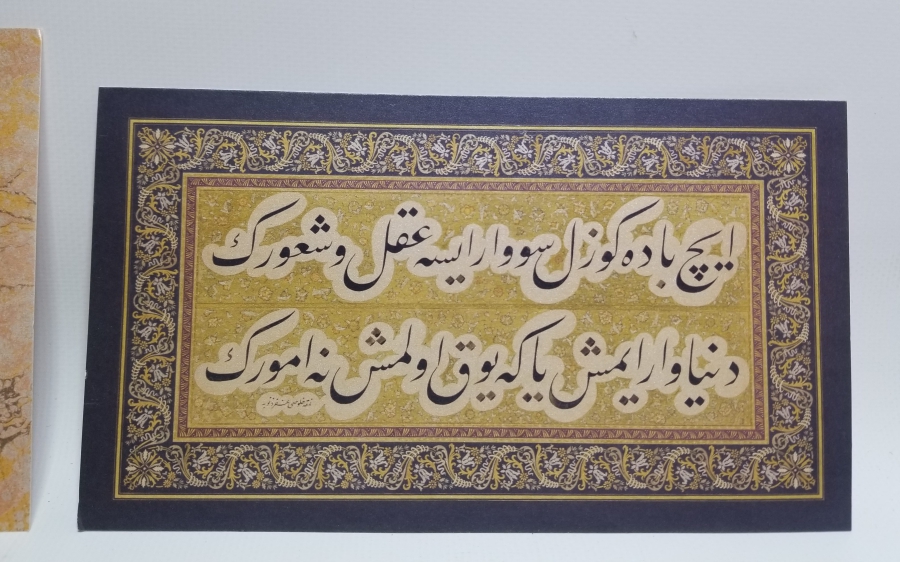 ایچ باده كوزل سو وار ایسه عقل و شعورك
دنیا وار ایمش یا كه یوق اولمش نه امورك